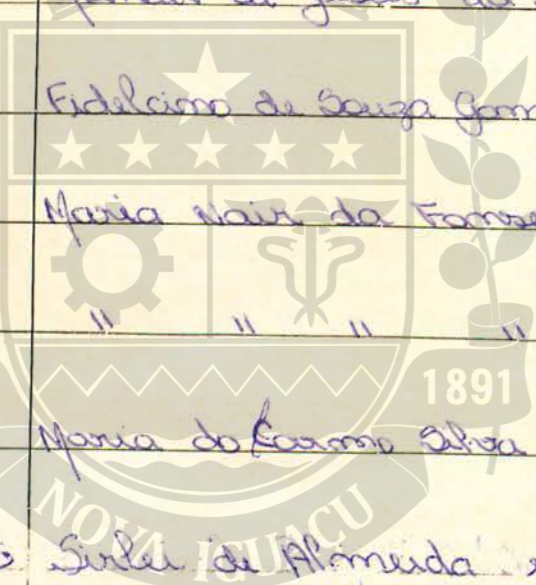 de
Fidelcino de Souza Gom
Maria Nair da Fonse
" " " "
1891
Maria do Carmo Silva
NOVA IGUAÇU
Sirlei de Almeida